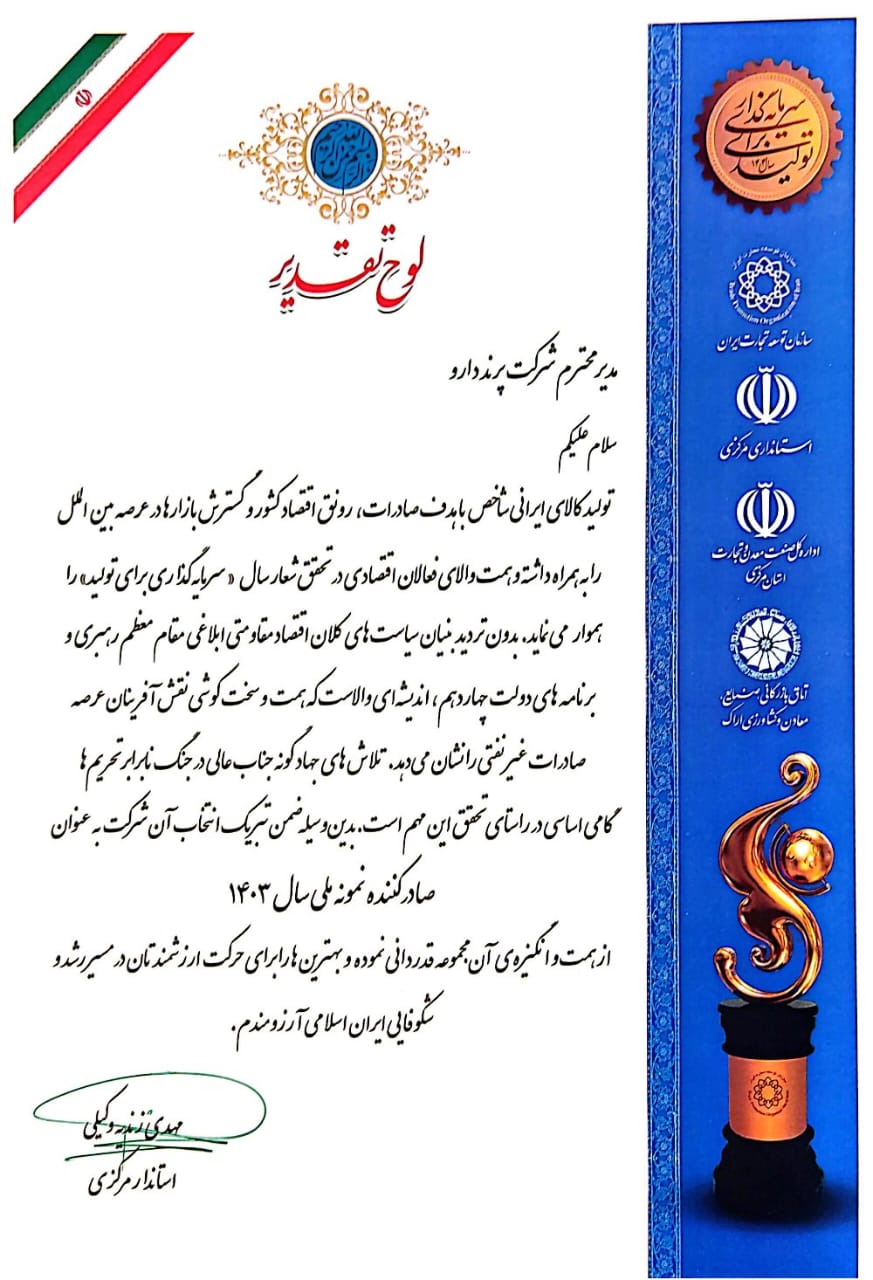 بسم الله الرحمن الرحیم
لوح تقدیر
مدیر محترم شرکت پرند دارو
سلام علیکم
تولید کالای ایرانی شاخص با هدف صادرات، رونق اقتصاد کشور و گسترش بازارها در عرصه بین الملل
را به همراه داشته و همت والای فعالان اقتصادی در تحقق شعار سال «سرمایه گذاری برای تولید» را
هموار می نماید. بدون تردید بنیان سیاست های کلان اقتصاد مقاومتی ابلاغی مقام معظم رهبری و
برنامه های دولت چهاردهم، اندیشه ای والاست که همت و سخت کوشی نقش آفرینان عرصه
صادرات غیر نفتی را نشان می دهد. تلاش های جهادگونه جناب عالی در جنگ نابرابر تحریم ها
گامی اساسی در راستای تحقق این مهم است. بدین وسیله ضمن تبریک انتخاب آن شرکت به عنوان
صادرکننده نمونه ملی سال ۱۴۰۳
از همت و انگیزه ی آن مجموعه قدردانی نموده و بهترین ها را برای حرکت ارزشمندتان در مسیر رشد و
شکوفایی ایران اسلامی آرزومندم.
مهدی زندیه وکیلی
استاندار مرکزی
سرمایه گذاری
برای
تولید
سال ۱۴۰۴
سازمان توسعه تجارت ایران
Trade Promotion Organization of Iran
سازمان توسعه تجارت ایران
استانداری مرکزی
اداره کل صنعت معدن و تجارت
استان مرکزی
اتاق بازرگانی صنایع،
معادن و کشاورزی اراک